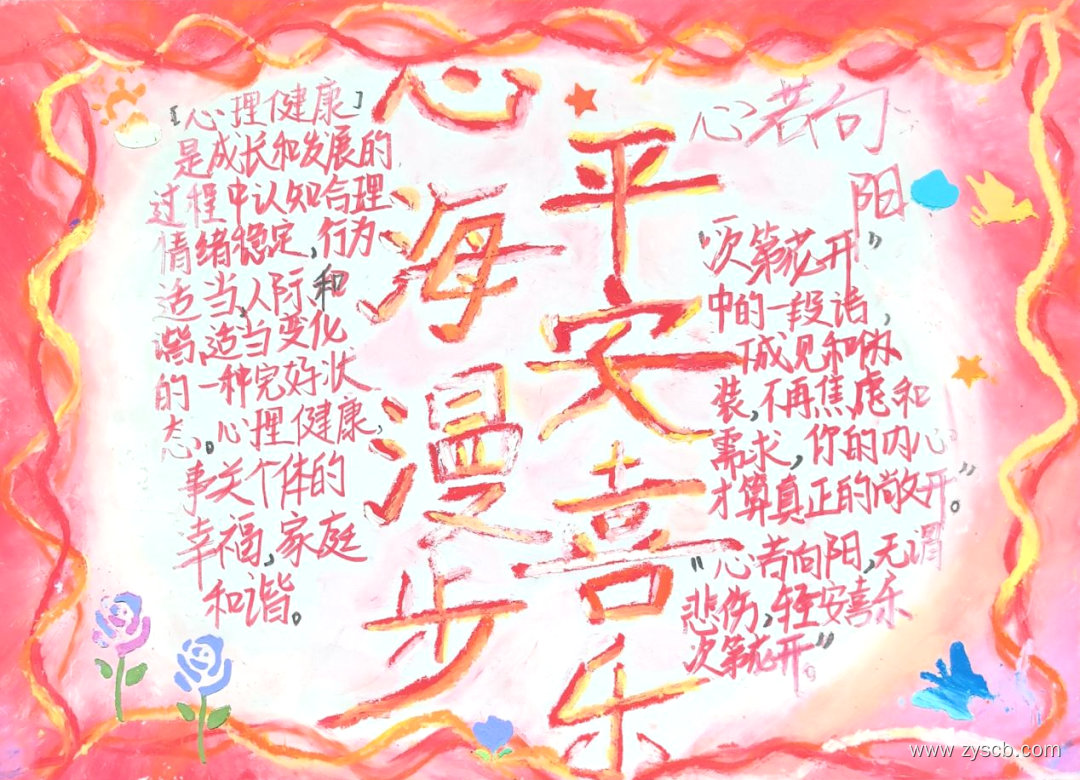 [心理健康]
是成长和发展的
过程中认知合理
情绪稳定,行为
适当,人际和
谐,适当变化
的一种完好状
态。心理健康,
事关个体的
幸福,家庭
和谐。
心海漫步
平安喜乐
心若向
阳
"次第花开"
中的一段话,
成见和伪
装,不再焦虑和
需求,你的内心
才算真正的敞开。"
"心若向阳,无谓
悲伤,轻安喜乐
次第花开。"
www.zyscb.com